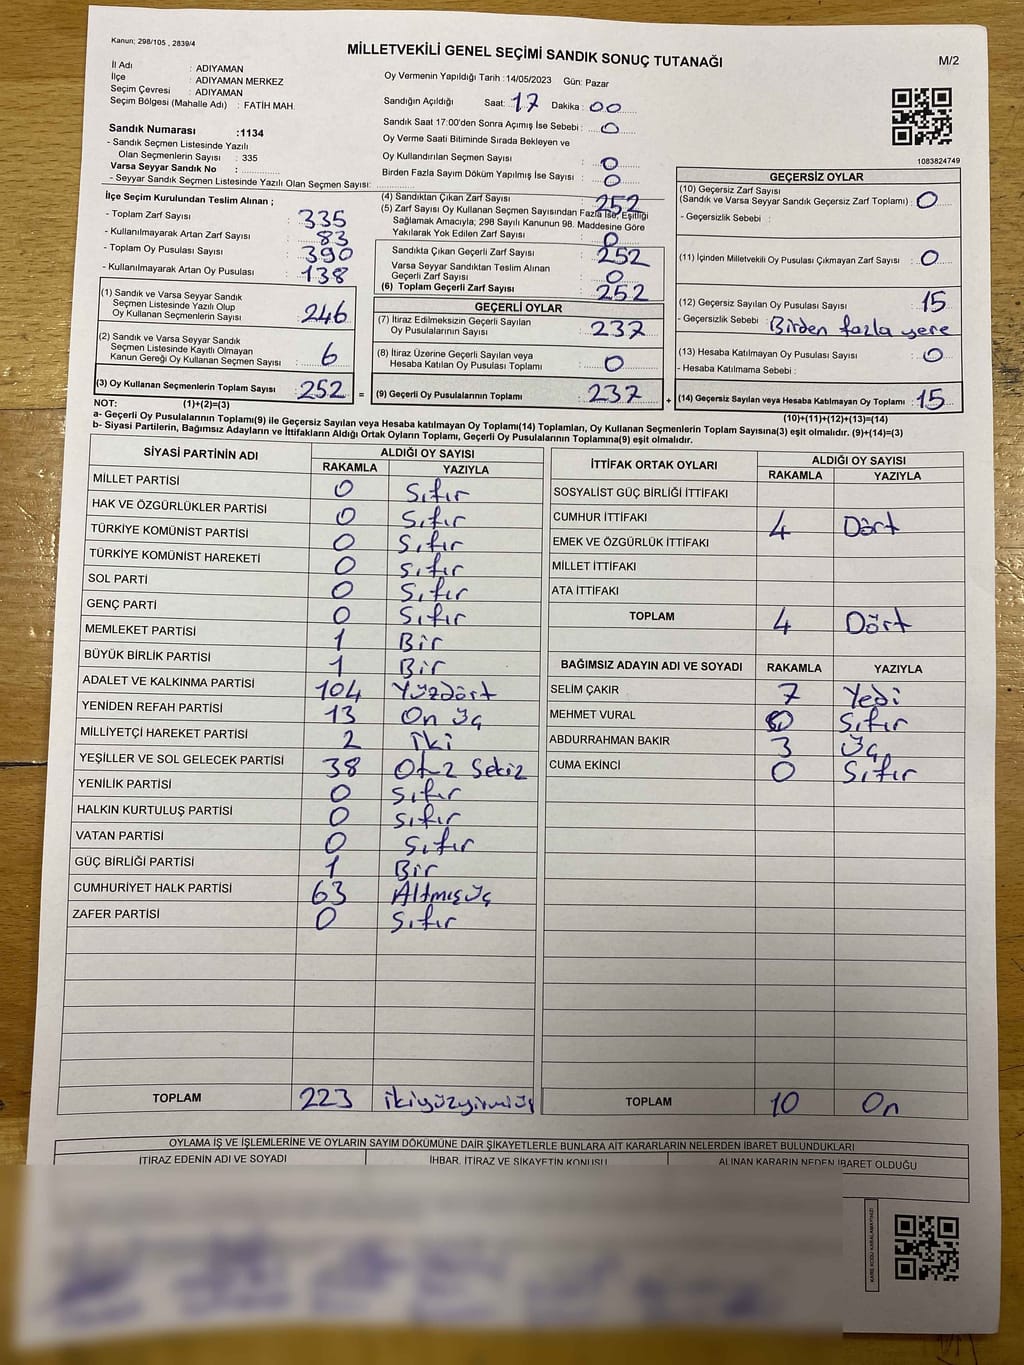 Kanun; 298/105 , 2839/4
MİLLETVEKİLİ GENEL SEÇİMİ SANDIK SONUÇ TUTANAĞI
M/2
İl Adı : ADIYAMAN
İlçe : ADIYAMAN MERKEZ
Seçim Çevresi : ADIYAMAN
Seçim Bölgesi (Mahalle Adı) : FATİH MAH.
Sandık Numarası :1134
- Sandık Seçmen Listesinde Yazılı
Olan Seçmenlerin Sayısı : 335
Varsa Seyyar Sandık No :
- Seyyar Sandık Seçmen Listesinde Yazılı Olan Seçmen Sayısı:
Oy Vermenin Yapıldığı Tarih : 14/05/2023 Gün: Pazar
Sandığın Açıldığı Saat: 17 Dakika : 00
Sandık Saat 17:00'den Sonra Açılmış İse Sebebi : 0
Oy Verme Saati Bitiminde Sırada Bekleyen ve
Oy Kullandırılan Seçmen Sayısı : 0
Birden Fazla Sayım Döküm Yapılmış İse Sayısı : 0
1083824749
İlçe Seçim Kurulundan Teslim Alınan ;
- Toplam Zarf Sayısı : 335
- Kullanılmayarak Artan Zarf Sayısı : 83
- Toplam Oy Pusulası Sayısı : 390
- Kullanılmayarak Artan Oy Pusulası : 138
(1) Sandık ve Varsa Seyyar Sandık
Seçmen Listesinde Yazılı Olup
Oy Kullanan Seçmenlerin Sayısı : 246
(2) Sandık ve Varsa Seyyar Sandık
Seçmen Listesinde Kayıtlı Olmayan
Kanun Gereği Oy Kullanan Seçmen Sayısı : 6
(3) Oy Kullanan Seçmenlerin Toplam Sayısı : 252 =
(4) Sandıktan Çıkan Zarf Sayısı : 252
(5) Zarf Sayısı Oy Kullanan Seçmen Sayısından Fazla İse, Eşitliği
Sağlamak Amacıyla; 298 Sayılı Kanunun 98. Maddesine Göre
Yakılarak Yok Edilen Zarf Sayısı : 0
Sandıkta Çıkan Geçerli Zarf Sayısı : 252
Varsa Seyyar Sandıktan Teslim Alınan
Geçerli Zarf Sayısı : 0
(6) Toplam Geçerli Zarf Sayısı : 252
GEÇERLİ OYLAR
(7) İtiraz Edilmeksizin Geçerli Sayılan
Oy Pusulalarının Sayısı : 237
(8) İtiraz Üzerine Geçerli Sayılan veya
Hesaba Katılan Oy Pusulası Toplamı : 0
(9) Geçerli Oy Pusulalarının Toplamı : 237 +
GEÇERSİZ OYLAR
(10) Geçersiz Zarf Sayısı
(Sandık ve Varsa Seyyar Sandık Geçersiz Zarf Toplamı) : 0
- Geçersizlik Sebebi :
(11) İçinden Milletvekili Oy Pusulası Çıkmayan Zarf Sayısı : 0
(12) Geçersiz Sayılan Oy Pusulası Sayısı : 15
- Geçersizlik Sebebi : Birden fazla yere
(13) Hesaba Katılmayan Oy Pusulası Sayısı : 0
- Hesaba Katılmama Sebebi :
(14) Geçersiz Sayılan veya Hesaba Katılmayan Oy Toplamı : 15
NOT: (1)+(2)=(3)
(10)+(11)+(12)+(13)=(14)
a- Geçerli Oy Pusulalarının Toplamı(9) ile Geçersiz Sayılan veya Hesaba katılmayan Oy Toplamı(14) Toplamları, Oy Kullanan Seçmenlerin Toplam Sayısına(3) eşit olmalıdır. (9)+(14)=(3)
b- Siyasi Partilerin, Bağımsız Adayların ve İttifakların Aldığı Ortak Oyların Toplamı, Geçerli Oy Pusulalarının Toplamına(9) eşit olmalıdır.
SİYASİ PARTİNİN ADI ALDIĞI OY SAYISI
RAKAMLA YAZIYLA
MİLLET PARTİSİ 0 Sıfır
HAK VE ÖZGÜRLÜKLER PARTİSİ 0 Sıfır
TÜRKİYE KOMÜNİST PARTİSİ 0 Sıfır
TÜRKİYE KOMÜNİST HAREKETİ 0 Sıfır
SOL PARTİ 0 Sıfır
GENÇ PARTİ 0 Sıfır
MEMLEKET PARTİSİ 1 Bir
BÜYÜK BİRLİK PARTİSİ 1 Bir
ADALET VE KALKINMA PARTİSİ 104 Yüzdört
YENİDEN REFAH PARTİSİ 13 On üç
MİLLİYETÇİ HAREKET PARTİSİ 2 iki
YEŞİLLER VE SOL GELECEK PARTİSİ 38 Otuz Sekiz
YENİLİK PARTİSİ 0 Sıfır
HALKIN KURTULUŞ PARTİSİ 0 Sıfır
VATAN PARTİSİ 0 Sıfır
GÜÇ BİRLİĞİ PARTİSİ 1 Bir
CUMHURİYET HALK PARTİSİ 63 Altmışüç
ZAFER PARTİSİ 0 Sıfır
TOPLAM 223 ikiyüzyirmiüç
İTTİFAK ORTAK OYLARI ALDIĞI OY SAYISI
RAKAMLA YAZIYLA
SOSYALİST GÜÇ BİRLİĞİ İTTİFAKI
CUMHUR İTTİFAKI 4 Dört
EMEK VE ÖZGÜRLÜK İTTİFAKI
MİLLET İTTİFAKI
ATA İTTİFAKI
TOPLAM 4 Dört
BAĞIMSIZ ADAYIN ADI VE SOYADI RAKAMLA YAZIYLA
SELİM ÇAKIR 7 Yedi
MEHMET VURAL 0 Sıfır
ABDURRAHMAN BAKIR 3 Üç
CUMA EKİNCİ 0 Sıfır
TOPLAM 10 On
OYLAMA İŞ VE İŞLEMLERİNE VE OYLARIN SAYIM DÖKÜMÜNE DAİR ŞİKAYETLERLE BUNLARA AİT KARARLARIN NELERDEN İBARET BULUNDUKLARI
İTİRAZ EDENİN ADI VE SOYADI İHBAR, İTİRAZ VE ŞİKAYETİN KONUSU ALINAN KARARIN NEDEN İBARET OLDUĞU
KARE KODU KARALAMAYINIZ!